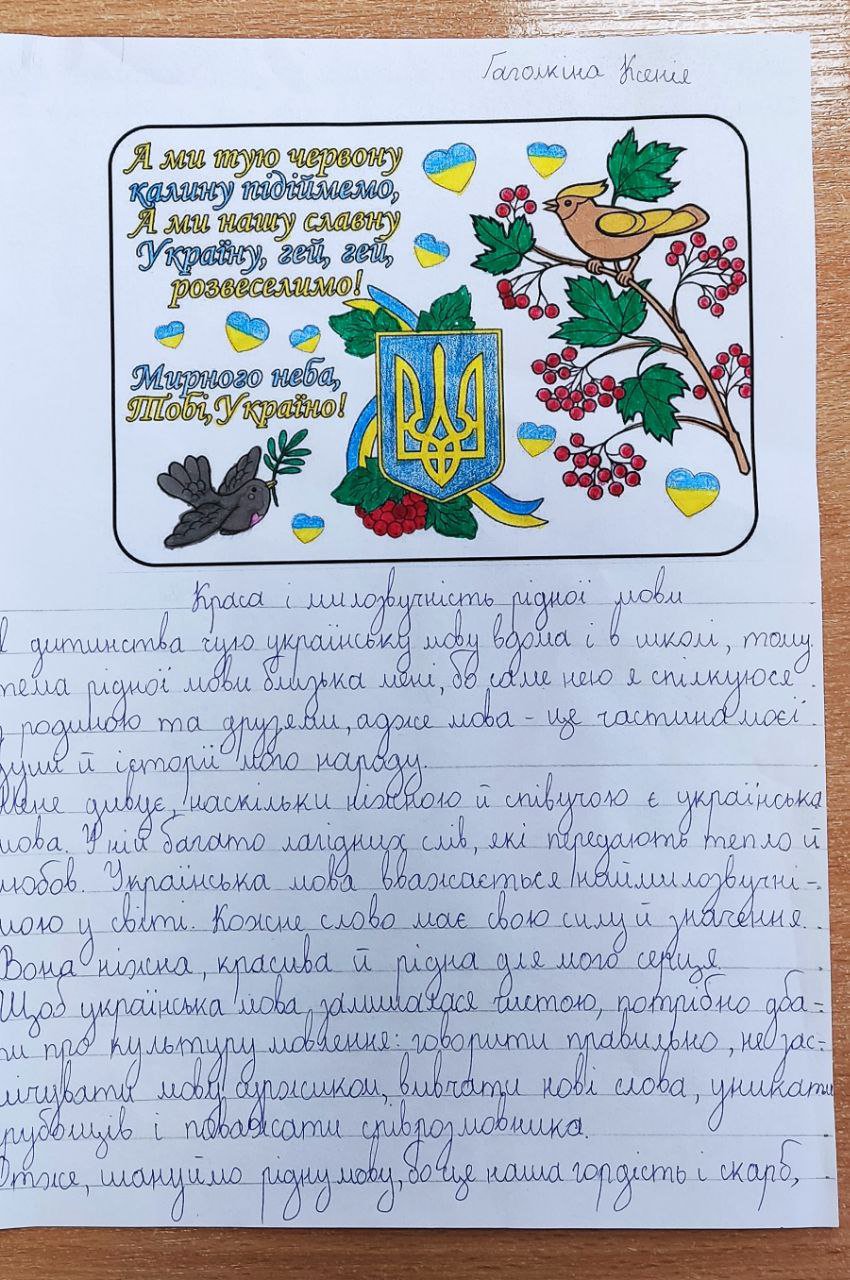 Гаголкіна Ксенія
А ми тую червону
калину підіймемо,
А ми нашу славну
Україну, гей, гей,
розвеселимо!
Мирного неба,
Тобі, Україно!
Краса і милозвучність рідної мови
дитинства чую українську мову вдома і в школі, тому
тема рідної мови близька мені, бо саме нею я спілкуюся
з родиною та друзями, адже мова - це частина моєї
душі й історії мого народу.
Мене дивує, наскільки ніжною й співучою є українська
мова. У ній багато лагідних слів, які передають тепло й
любов. Українська мова вважається наймилозвучні-
шою у світі. Кожне слово має свою силу й значення.
Вона ніжна, красива й рідна для мого серця.
Щоб українська мова залишалася чистою, потрібно дба-
ти про культуру мовлення: говорити правильно, не зас-
мічувати мову суржиком, вивчати нові слова, уникати
грубощів і поважати співрозмовника.
Отже, шануймо рідну мову, бо це наша гордість і скарб,